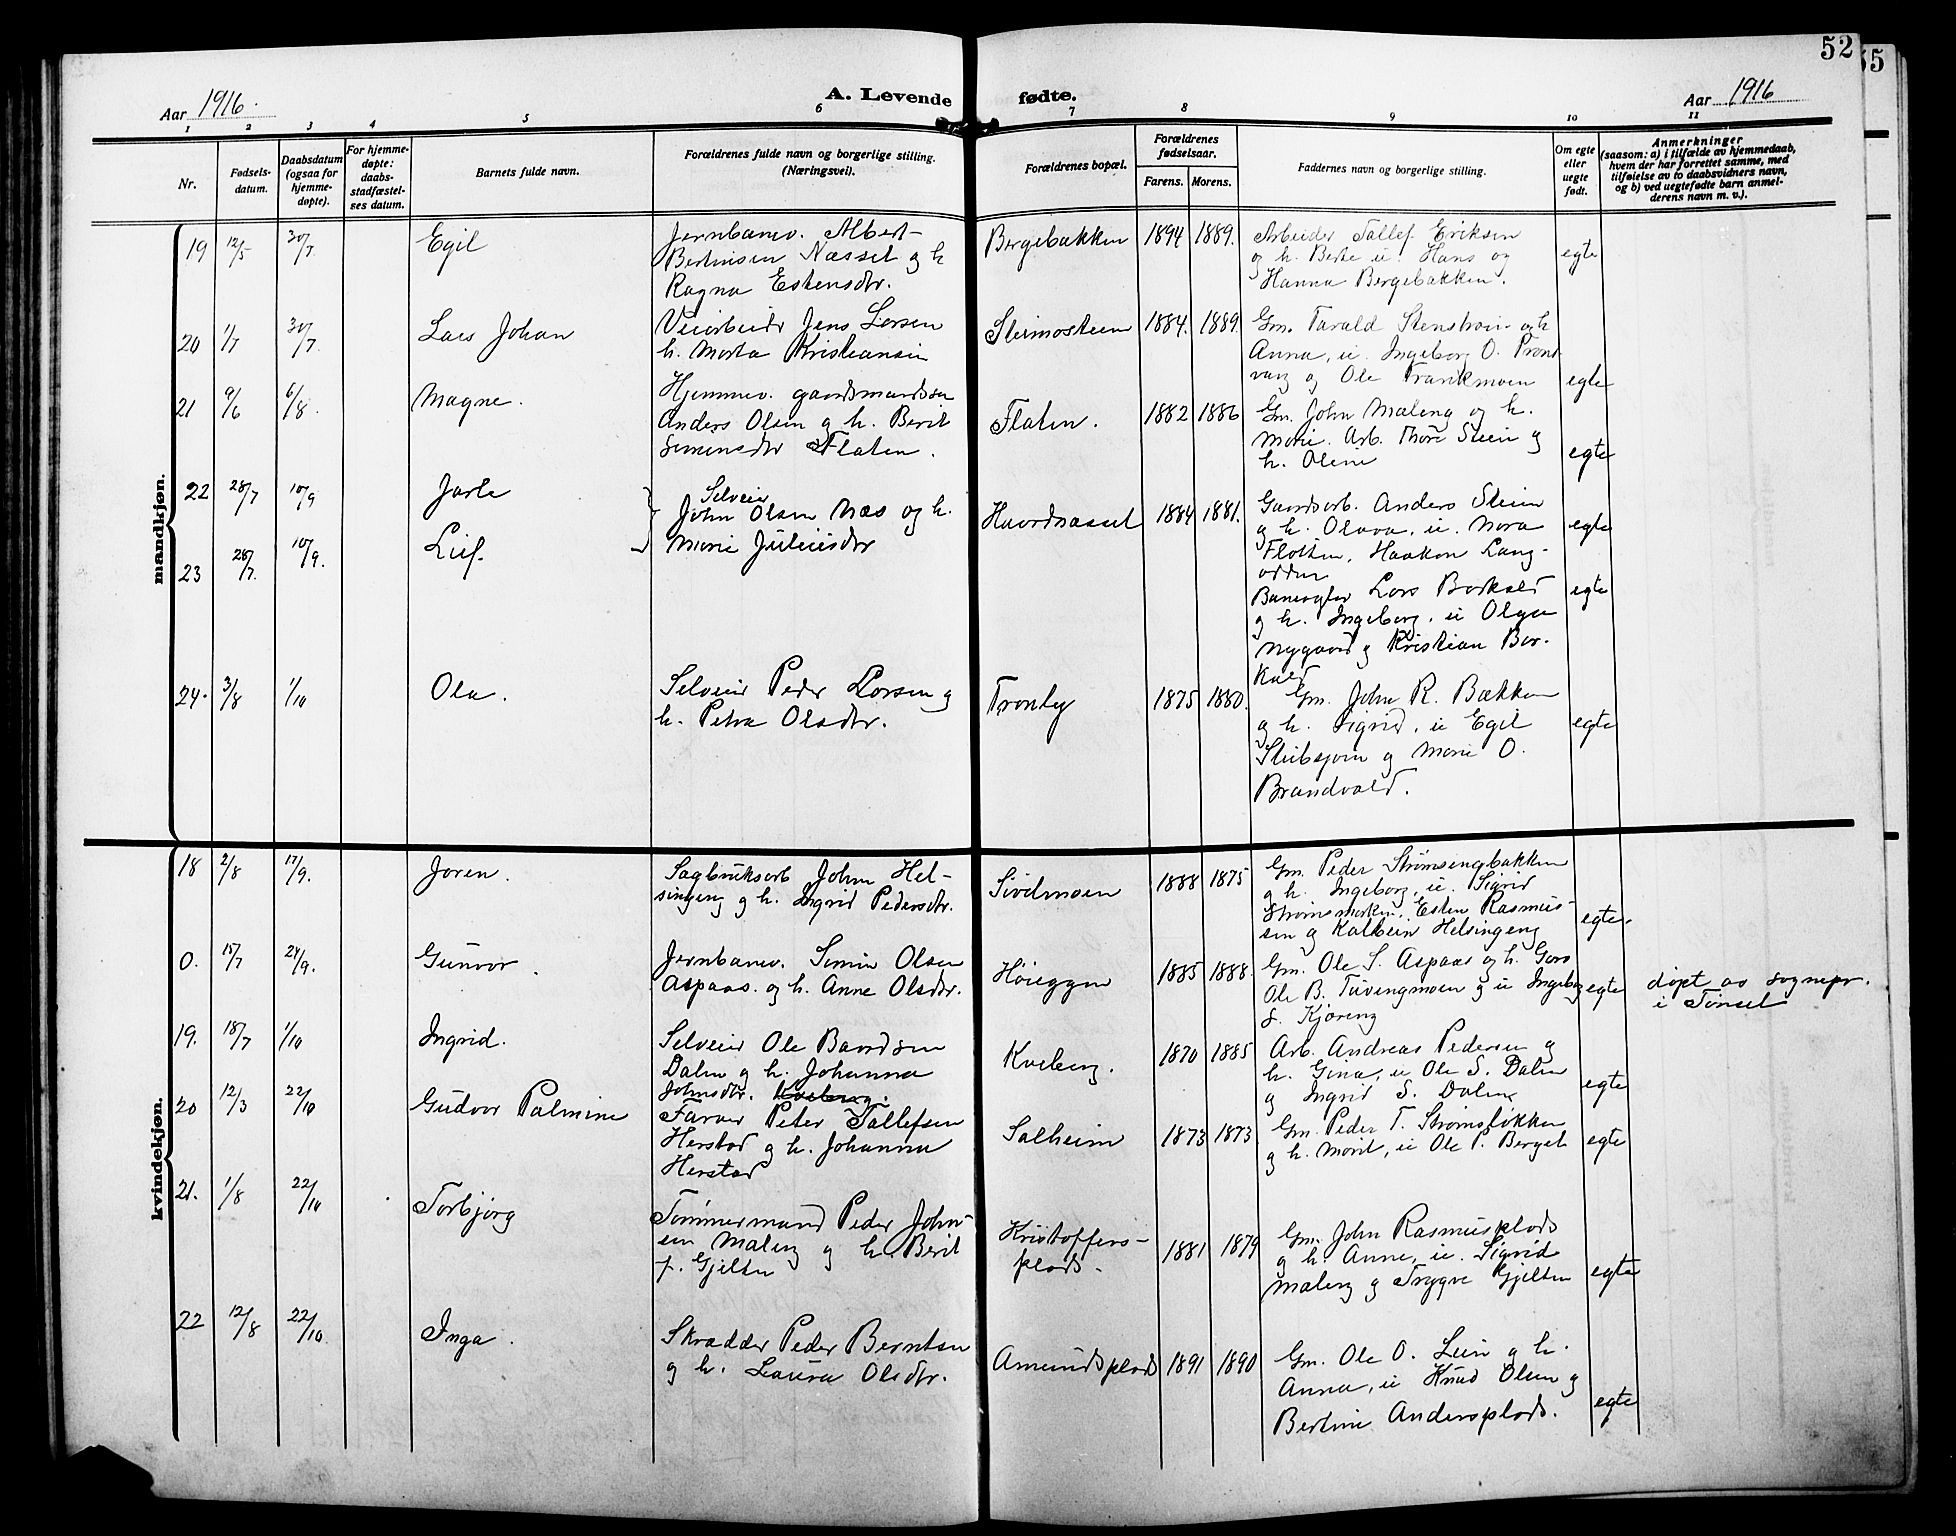 52
55
Aar 1916.
A. Levende fødte.
Aar 1916
1 2 3 4 5 6 7 8 9 10 11
Nr.
Fødsels-
datum.
Daabsdatum
(ogsaa for
hjemme-
døpte).
For hjemme-
døpte:
daabs-
stadfæstel-
ses datum.
Barnets fulde navn.
Forældrenes fulde navn og borgerlige stilling.
(Næringsvei).
Forældrenes bopæl.
Forældrenes
fødselsaar.
Farens. Morens.
Faddernes navn og borgerlige stilling.
Om egte
eller
uegte
født.
Anmerkninger
(saasom: a) i tilfælde av hjemmedaab,
hvem der har forrettet samme, med
tilføielse av to daabsvidners navn,
og b) ved uegtefødte barn anmel-
derens navn m. v.).
mandkjøn.
19 12/5 30/7 Egil
Jernbanev. Albert
Bertinsen Næsset og h
Ragna Estensdtr.
Bergebakken 1894 1889.
Arbeider Tallef Eriksen
og h. Berte u. Hans og
Hanna Bergebakken.
egte
20 1/7 30/7 Lars Johan
Veiarbeider Jens Larsen
h. Marta Kristiansen
Steimosteen 1884. 1889.
Gm. Tarald Stenstrøm og h
Anna, u. Ingeborg O. Tron
vang og Ole Trankmoen
egte
21 9/6 6/8. Magne.
Hjemmev. gaardmandssøn
Anders Olsen og h. Berit
Simensdtr Flaten.
Flaten. 1882 1886
Gm. John Maleng og h.
Marie. Arb. Thore Steen og
h. Oline
egte
22 28/7 10/9 Jarle
23 28/7. 10/9. Leif.
Selveier
John Olsen Næs og h.
Marie Juliusdtr
Haardnæsset 1884 1881.
Gaardsarb. Anders Steien
og h. Olava, u. Nora
Flotten, Haakon Lang-
odden
egte
Banevogter Lars Barkald
og h. Ingeborg. u Olga
Nygaard og Kristian Bar-
kald
egte
24. 3/8 1/10 Ola.
Selveier Peder Larsen og
h. Petra Olsdtr.
Tronby 1875 1880.
Gm. John R. Bækken
og h. Sigrid, u Egil
Steibsjoen og Marie O.
Brandvold.
egte
kvindekjøn.
18 2/8 17/9. Joren.
Sagbruksarb John Hel-
singeng og h. Ingrid Pedersdtr.
Sivilmoen 1888 1875
Gm. Peder Strømsengbakken
og h. Ingeborg, u. Sigrid
Strømsmarken, Esten Rasmus-
sen og Kolbein Helsingeng
egte.
0. 15/7 24/9. Gunvor.
Jernbanev. Simen Olsen
Aspaas. og h. Anne Olsdtr.
Høieggen 1885 1888.
Gm. Ole S. Aspaas og h. Goro
Ole B. Tuvengmoen og u Ingeborg
S. Kjæreng
egte
døpt av sognepr.
i Tønset
19. 18/7 1/10 Ingrid.
Selveier Ole Baardsen
Dalen og h. Johanna
Johnsdtr. Kveberg.
Kveberg. 1870 1885
Arb. Andreas Pedersen og
h. Gina, u Ole S. Dalen
og Ingrid S. Dalen
egte
20 12/3 22/10 Gudvor Palmine
Farver Peter Tallefsen
Herstad og h. Johanna
Herstad
Solheim 1873 1873
Gm. Peder T. Strømsløkken
og h. Marit, u Ole P. Berget
egte
21. 1/8 22/10 Torbjørg
Tømmermand Peder John-
sen Maleng og h. Berit
f. Gjelten
Kristoffers-
plads. 1881 1879
Gm. John Rasmusplads
og h. Anne, u. Sigrid
Maleng og Trygve Gjelten
egte
22 12/8 22/10. Inga.
Skrædder Peder Berntsen
og h. Laura Olsdtr.
Amundsplads 1891 1890
Gm. Ole O. Lien og h.
Anna, u Knud Olsen og
Bertine Andersplads.
egte